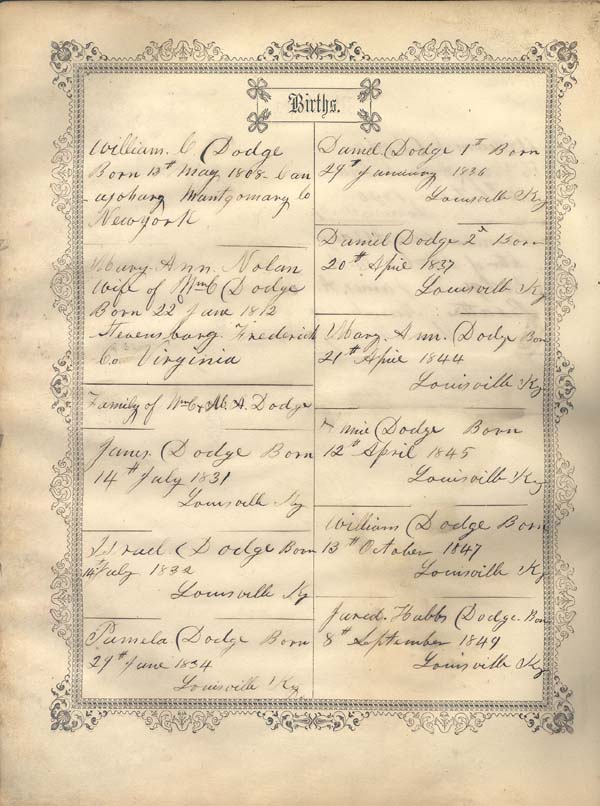 Births.
William. C Dodge
Born 13th May 1808 - Can
-ajohary Montgomary Co
Newyork
Mary Ann. Nolan
Wife of Wm C Dodge
Born 22d June 1812
Stevensburg Frederick
Co Virginia
Family of Wm C & M. A. Dodge
James. Dodge Born
14th July 1831
Louisville Ky
Israel Dodge Born
14th July 1832
Louisville Ky
Pamela Dodge Born
29th June 1834
Louisville Ky
Daniel. Dodge 1st Born
29th January 1836
Louisville Ky
Daniel Dodge 2d Born
20th April 1837
Louisville Ky
Mary. Ann. Dodge Born
21st April 1844
Louisville Ky
Dodge Born
12th April 1845
Louisville Ky
William Dodge Born
13th October 1847
Louisville Ky
Jared. Hubbs Dodge. Born
8th September 1849
Louisville Ky